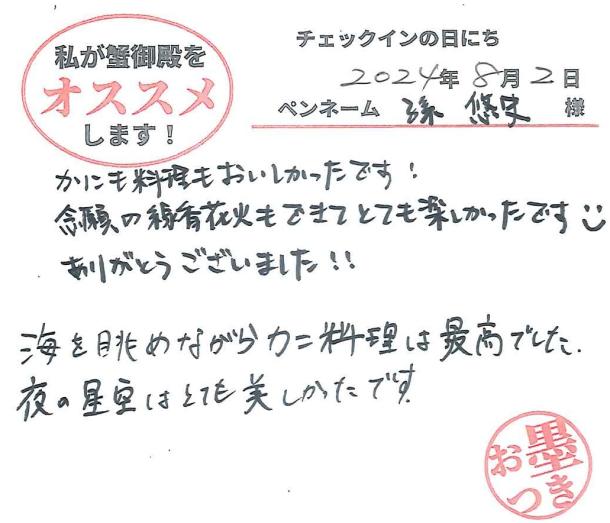 私が蟹御殿を
オススメ
します!
チェックインの日にち
2024年8月2日
ペンネーム 孫 悠史 様
かにも料理もおいしかったです!
念願の線香花火もできてとても楽しかったです
ありがとうございました!!
海を眺めながらカニ料理は最高でした.
夜の星空はとても美しかったです
お墨つき